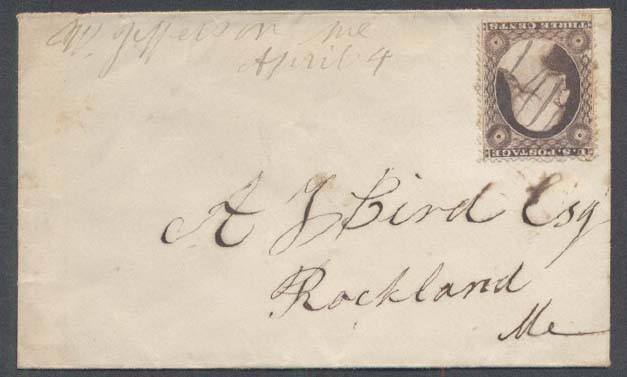 W. Jefferson Me
April 4
THREE CENTS
U.S. POSTAGE
A J Bird Esq
Rockland
Me